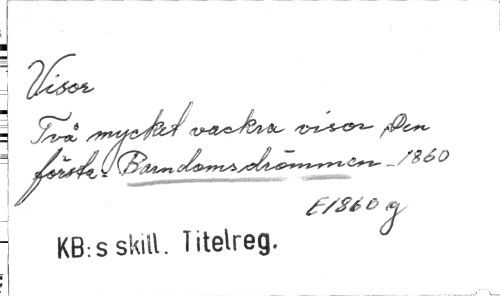 Visor
Två mycket vackra visor Den
första: Barndomsdrömmen _ 1860
E1860 g
KB:s skill. Titelreg.